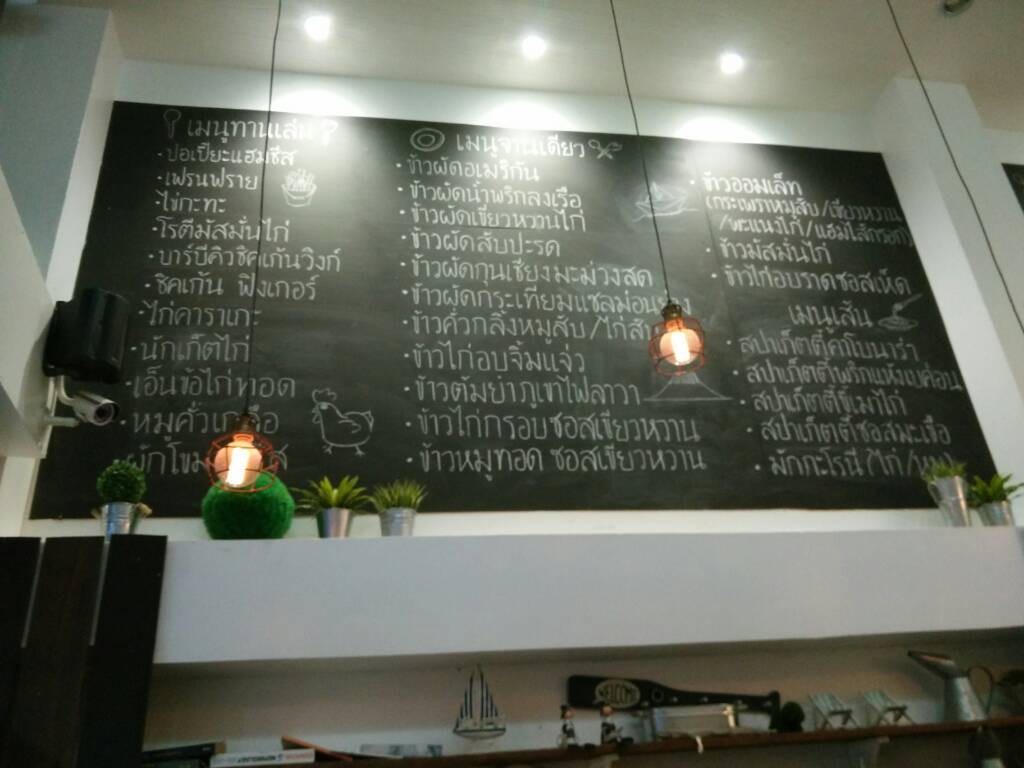 เมนูทานเล่น
• ปอเปี๊ยะแฮมชีส
• เฟรนฟราย
• ไข่กะทะ
• โรตีมัสมั่นไก่
• บาร์บีคิวชิคเก้นวิงก์
• ชิคเก้น ฟิงเกอร์
• ไก่คาราเกะ
• นักเก็ตไก่
• เอ็นข้อไก่ทอด
• หมูคั่วเกลือ
ผักโขม
เมนูจานเดียว
• ข้าวผัดอเมริกัน
• ข้าวผัดน้ำพริกลงเรือ
• ข้าวผัดเขียวหวานไก่
• ข้าวผัดสับปะรด
• ข้าวผัดกุนเชียงมะม่วงสด
• ข้าวผัดกระเทียมแซลม่อน
• ข้าวคั่วกลิ้งหมูสับ/ไก่สับ
• ข้าวไก่อบจิ้มแจ่ว
• ข้าวต้มยำภูเขาไฟลาวา
• ข้าวไก่กรอบซอสเขียวหวาน
• ข้าวหมูทอด ซอสเขียวหวาน
• ข้าวออมเล็ท
(กระเพราหมูสับ/เขียวหวาน
/พะแนงไก่/แฮมไส้กรอก)
• ข้าวมัสมั่นไก่
• ข้าวไก่อบราดซอสเห็ด
เมนูเส้น
• สปาเก็ตตี้คาโบนาร่า
• สปาเก็ตตี้พริกแห้งเบค่อน
• สปาเก็ตตี้ขี้เมาไก่
• สปาเก็ตตี้ซอสมะเขือ
• มักกะโรนี (ไก่/หมู)
WELCOME